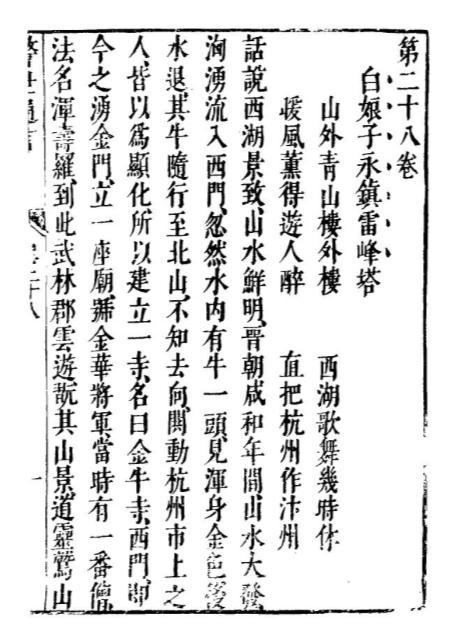 第二十八卷
白娘子永鎭雷峰塔
山外青山樓外樓　西湖歌舞幾時休
煖風薰得遊人醉　直把杭州作汴州
話說西湖景致、山水鮮明、晉朝咸和年間、山水大發
洶湧流入西門、忽然水內有牛一頭、見渾身金色、後
水退、其牛隨行至北山、不知去向、鬨動杭州市上之
人、皆以爲顯化、所以建立一寺、名曰金牛寺、西門、卽
今之湧金門、立一座廟、號金華將軍、當時有一番僧
法名渾壽羅、到此武林郡雲遊、翫其山景、道靈鷲山
警世通言 卷二十八 一